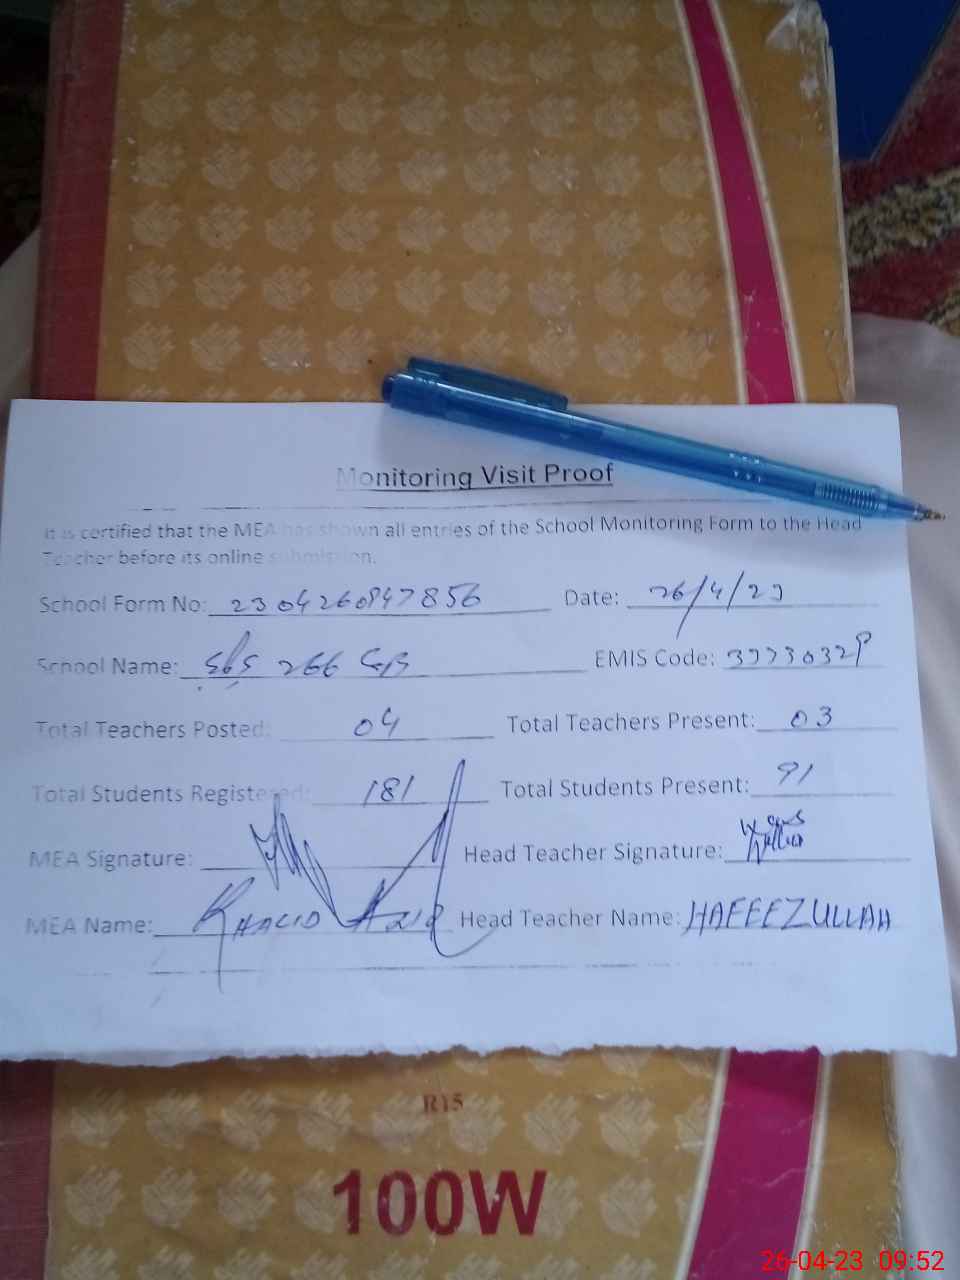 Monitoring Visit Proof
It is certified that the MEA has shown all entries of the School Monitoring Form to the Head
Teacher before its online submission.
School Form No: 2304260947856 Date: 26/4/23
School Name: 266 GB EMIS Code:
Total Teachers Posted: 04 Total Teachers Present: 03
Total Students Registered: 181 Total Students Present: 91
MEA Signature: Head Teacher Signature:
MEA Name: KHALID AZIZ Head Teacher Name: HAFEEZULLAH
R15
100W
26-04-23 09:52